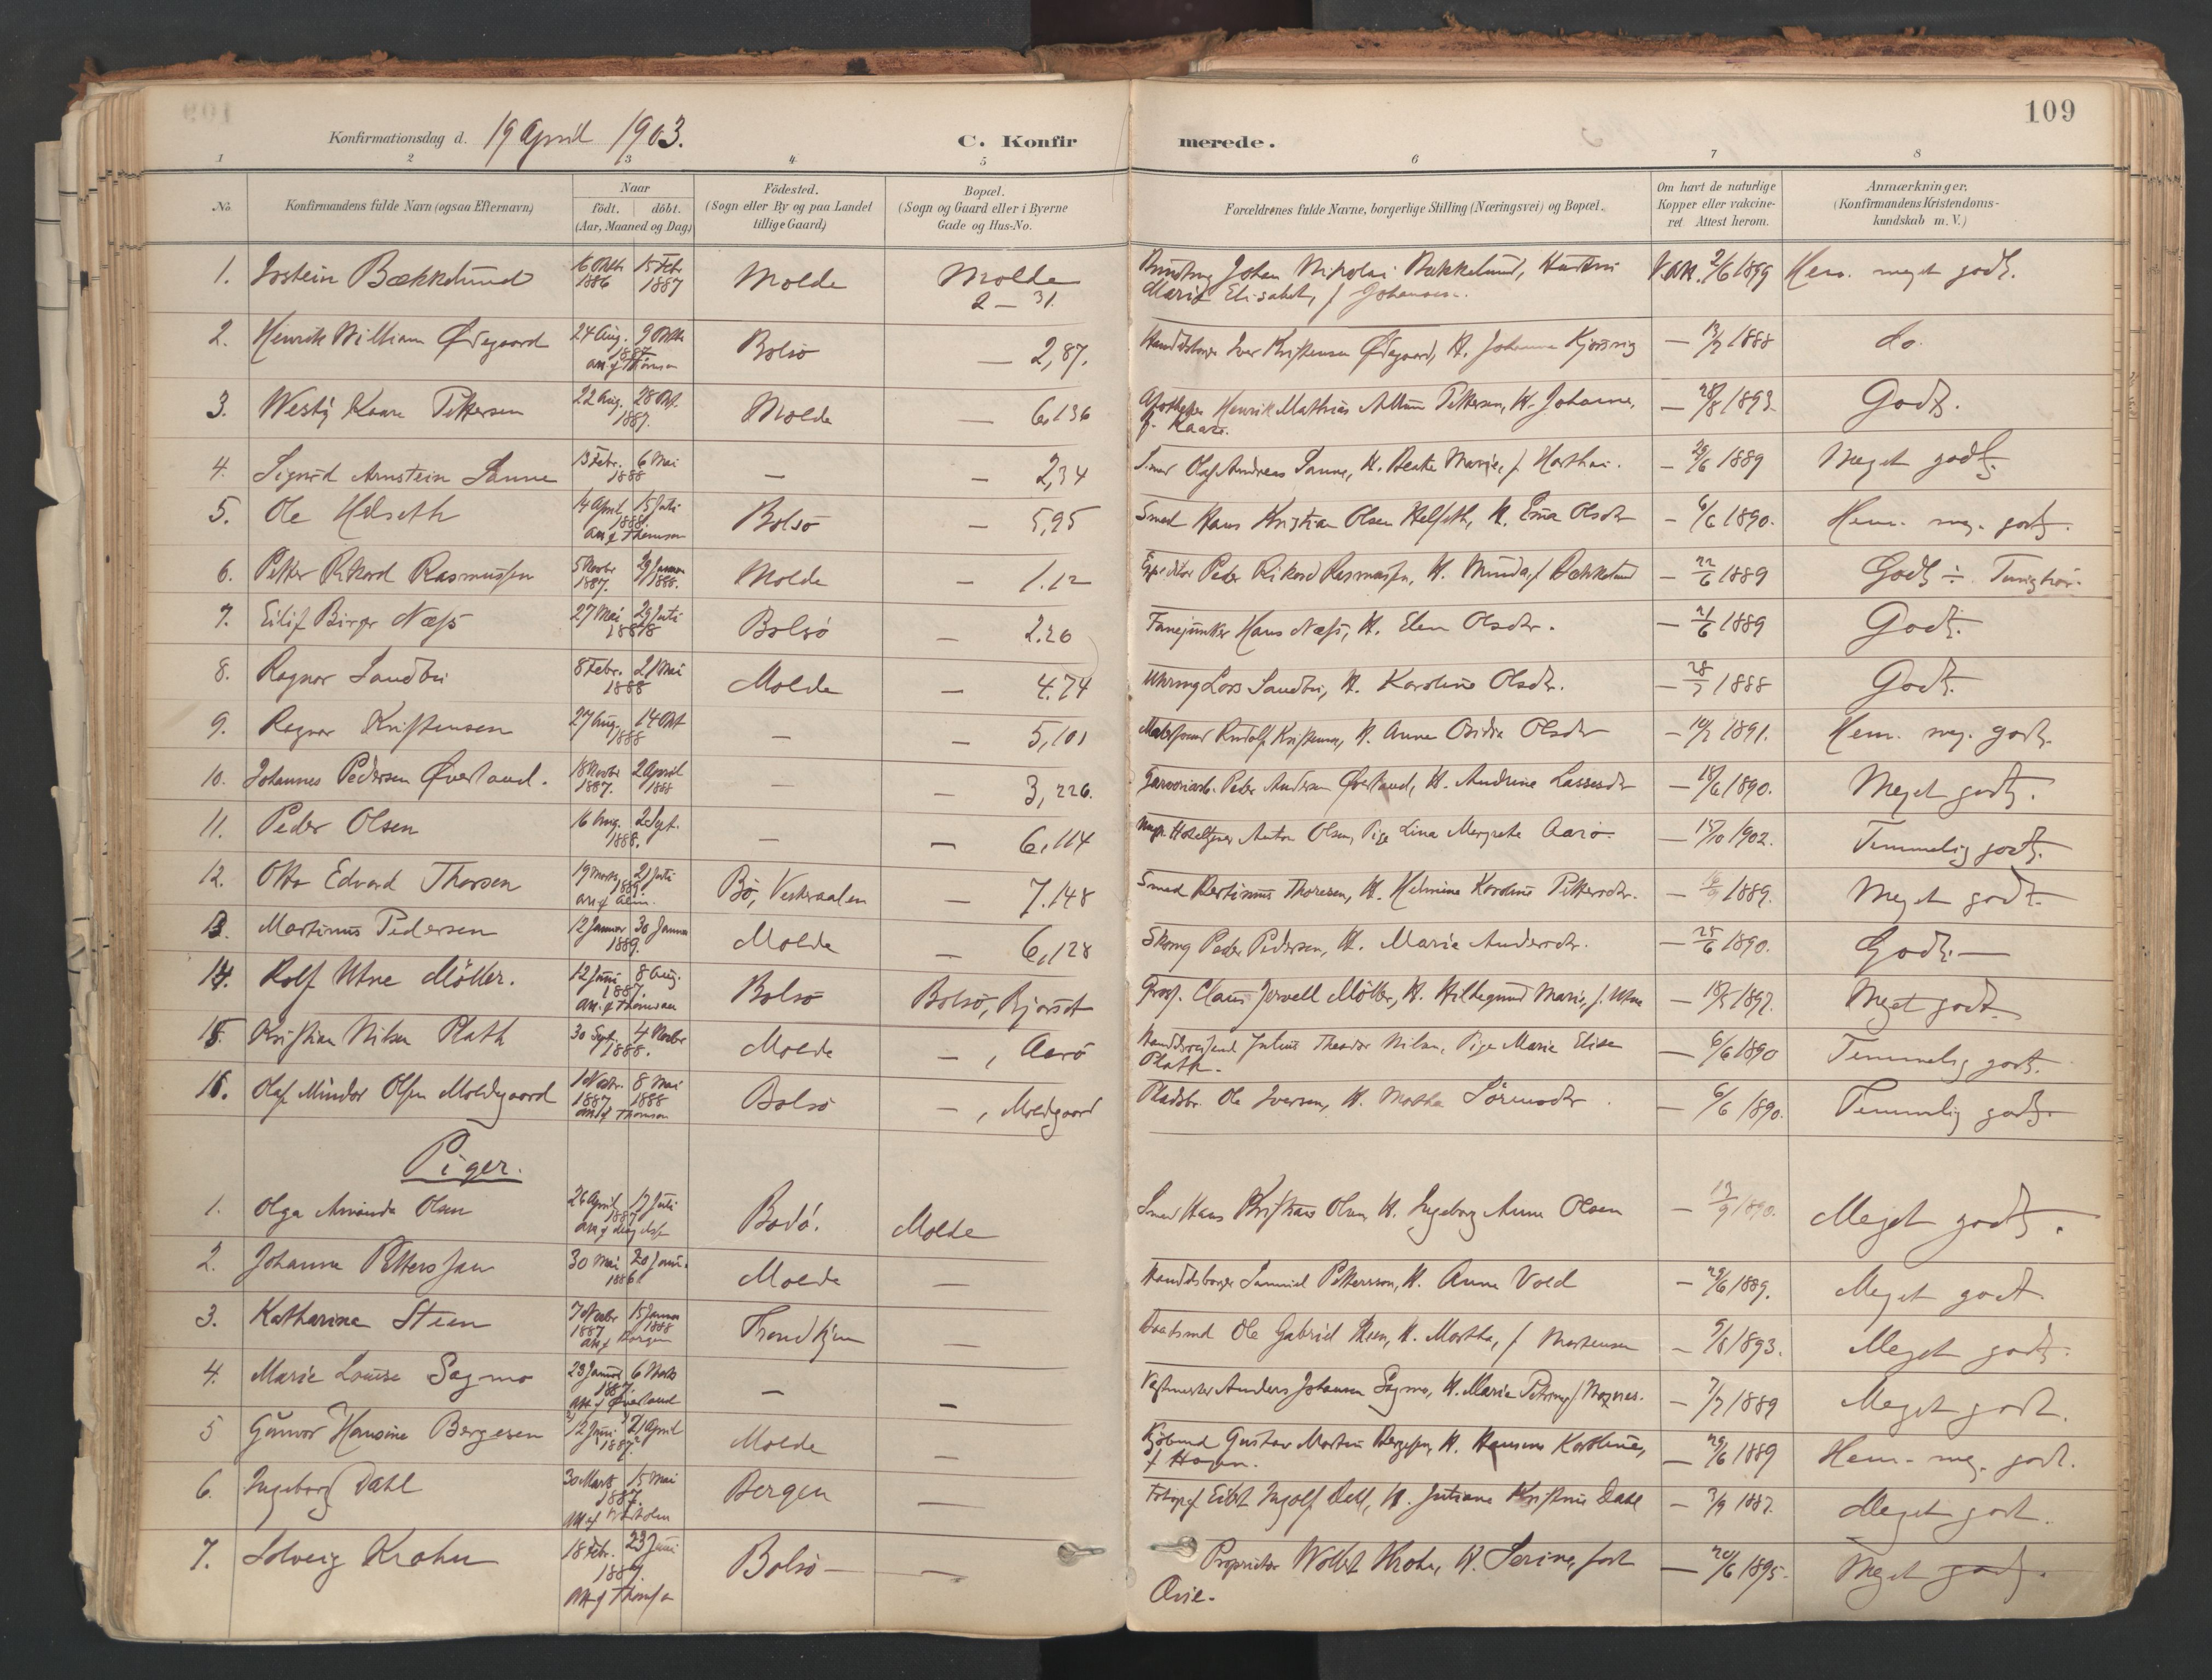 109
Konfirmationsdag d. 19 April 1903.
C. Konfirmerede.
1 2 3 4 5 6 7 8
No. Konfirmandens fulde Navn (ogsaa Efternavn) Naar födt. döbt. (Aar, Maaned og Dag) Födested. (Sogn eller By og paa Landet tillige Gaard) Bopæl. (Sogn og Gaard eller i Byerne Gade og Hus-No. Forældrenes fulde Navne, borgerlige Stilling (Næringsvei) og Bopæl. Om havt de naturlige Kopper eller vakcineret Attest herom. Anmærkninger. (Konfirmandens Kristendomskundskab m. V.)
1. Jostein Bækkelund 16 Oktbr 1886 15 Febr 1887 Molde Molde 2 — 31. Johan Nikolai Bækkelund, Hustru Marie Elisabet, f. Johansen. Vak. 2/6 1899 Hem. meget godt.
2. Henrik William Ødegaard 24 Aug. 9 Oktbr 1887 Bolsö — 2,87. Handelsborger Iver Kristensen Ødegaard, H. Johanna — 13/7 1888 do.
3. Westy Kaare Pettersen 22 Aug. 28 Okt. 1887. Molde — 6,136 Apotheker Henrik Mathias Pettersen, H. Johanne, f. Kaare. — 28/8 1893. Godt.
4. Sigurd Arnstein Sanne 13 Febr. 6 Mai 1888 — — 2,34 Smed Olaf Andreas Sanne, H. Beate Marie, f. — 29/6 1889 Meget godt.
5. Ole Helseth 14 April 15 Juli 1888. anf Thomson Bolsö — 5,95 Smed Hans Kristian Olsen Helseth, H. Olsdtr — 6/6 1890. Hem. meg. godt.
6. Petter Rikard Rasmussen 5 Novbr 1887. 29 Januar 1888. Molde — 1.12 Expeditör Peder Rikard Rasmussen, H. Minda, f. Bækkelund — 22/6 1889 Godt ÷
7. Eilif Birger Næss 27 Mai 29 Juli 1888 Bolsö — 2.20 Fanejunker Hans Næss, H. Elen Olsdtr. — 21/6 1889 Godt.
8. Ragnar Sandbu 8 Febr. 21 Mai 1888 Molde — 4.74 Lars Sandbu, H. Karoline Olsdtr. — 28/7 1888 Godt.
9. Ragnar Kristensen 27 Aug. 14 Okt 1888 — — 5,101 Rudolf Kristensen, H. Anna Olsdtr — 10/7 1891. Hem. meg. godt.
10. Johannes Pedersen Øverland. 18 Novbr 1887. 2 April 1888 — — 3,226. Garveriarb. Peder Andersen Øverland, H. Andrine Lassesdtr — 18/6 1890. Meget godt.
11. Peder Olsen 16 Aug. 2 Sept. 1888. — — 6,114 Ungk. Anton Olsen, Pige Lina Margrete Aarö — 15/10 1902. Temmelig godt.
12. Otto Edvard Thorsen 19 Marts 21 Juli 1889. Bö, Vesteraalen — 7.148 Smed Bertinius Thoresen, H. Helmine Karoline Pettersdtr. — 1889. Meget godt.
13. Martinus Pedersen 12 Januar 30 Januar 1889. Molde — 6,128 Peder Pedersen, H. Marie Andersdtr. — 25/6 1890. Godt.
14. Rolf Utne Möller. 12 Juni 8 Aug. 1887. anf Thomson Bolsö Bolsö, Claus Jervell Möller, H. Hildegund Marie, f. Utne — 18/5 1892. Meget godt.
15. Kristian Nilsen Plath 30 Sept. 4 Novbr 1888. Molde —, Aarö Handelsreisende Julius Theodor Nilsen, Pige Marie Elise Plath. — 6/6 1890 Temmelig godt.
16. Olaf Mindor Olsen Moldegaard 1 Novbr. 1887 8 Mai 1888 anf Thomson Bolsö —, Moldegaard Pladsbr. Ole Iversen, H. Martha Sörensdtr. — 6/6 1890. Temmelig godt.
Piger.
1. Olga Amanda Olsen 26 April 17 Juli 1887 Bodö. Molde Smed Hans Kristian Olsen, H. Ingeborg Anna Olsen — 13/9 1890. Meget godt.
2. Johanna Pettersson 30 Mai 20 Juni 1886 Molde — Handelsborger Samuel Pettersson, H. Anna Vold — 29/6 1889. Meget godt.
3. Katharina Steen 7 Novbr 1887 15 Januar 1888 Trondhjem — Ole Gabriel Steen, H. Martha, f. Mortensen — 9/8 1893. Meget godt.
4. Marie Louise Sagmo 23 Januar 6 Marts 1887. anf Øverland — — Anders Johansen Sagmo, H. Maria Petrine, f. — 7/7 1889 Meget godt.
5 Gunvor Hansine Bergesen 12 Juni 21 April 1887. Molde — Kjöbmd Gustav Martin Bergesen, H. Hansine Karoline, f. Hagen. — 29/6 1889 Hem. meg. godt.
6. Ingeborg Dahl 30 Marts 15 Mai 1887. Bergen — Fotograf Eibert Ingolf Dahl, H. Juliane Kristine Dahl — 3/9 1887. Meget godt.
7. Solveig Krohn 18 Febr. 23 Juni 1889. anf Thomson Bolsö — — Proprietær Wollert Krohn, H. Serine, født Øvie. — 20/6 1895. Meget godt.